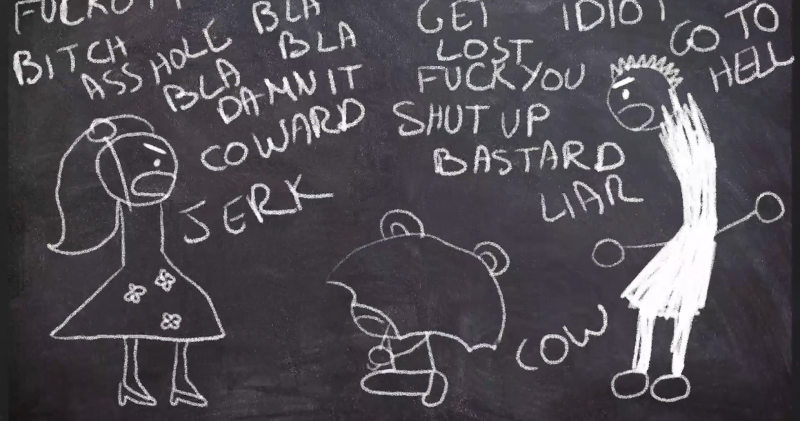 BLA
BLA
BITCH
ASSHOLE
BLA
DAMN IT
COWARD
JERK
GET
LOST
IDIOT
GO TO
HELL
FUCK YOU
SHUT UP
BASTARD
LIAR
COW